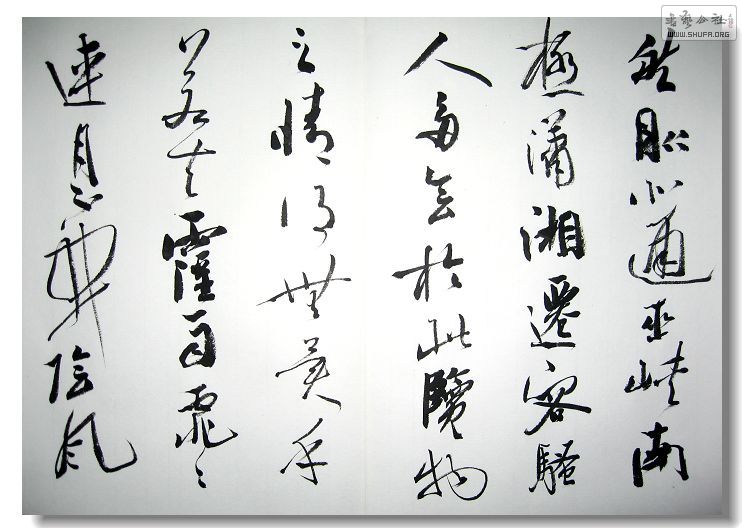 然則北通巫峽南
極瀟湘遷客騷
人多會於此覽物
之情得無異乎
若夫霪雨霏〻
連月不開陰風
书艺公社
WWW.SHUFA.ORG